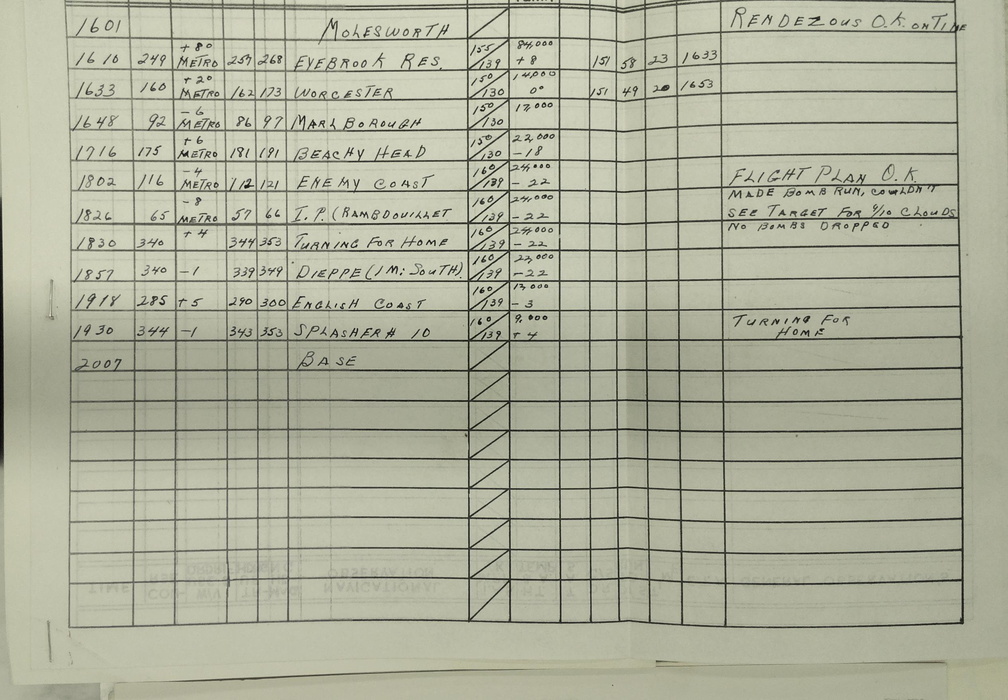 1601 MOLESWORTH RENDEZOUS O.K. ON TIME
+8° 155 84,000
1610 249 METRO 257 268 EYEBROOK RES. 139 +8 151 58 23 1633
+2° 150 14,000
1633 160 METRO 162 173 WORCESTER 130 0° 151 49 20 1653
-6 150 17,000
1648 92 METRO 86 97 MARLBOROUGH 130
+6 150 22,000
1716 175 METRO 181 191 BEACHY HEAD 130 -18
-4 160 24,000
1802 116 METRO 112 121 ENEMY COAST 139 -22 FLIGHT PLAN O.K.
-8 160 24,000 MADE BOMB RUN, COULDN'T
1826 65 METRO 57 66 I.P. (RAMBDOUILLET 139 -22 SEE TARGET FOR 9/10 CLOUDS
+4 160 24,000 NO BOMBS DROPPED
1830 340 344 353 TURNING FOR HOME 139 -22
160 23,000
1857 340 -1 339 349 DIEPPE (1 MI SOUTH) 139 -22
160 13,000
1918 285 +5 290 300 ENGLISH COAST 139 -3
160 9,000 TURNING FOR
1930 344 -1 343 353 SPLASHER # 10 139 +4 HOME
2007 BASE